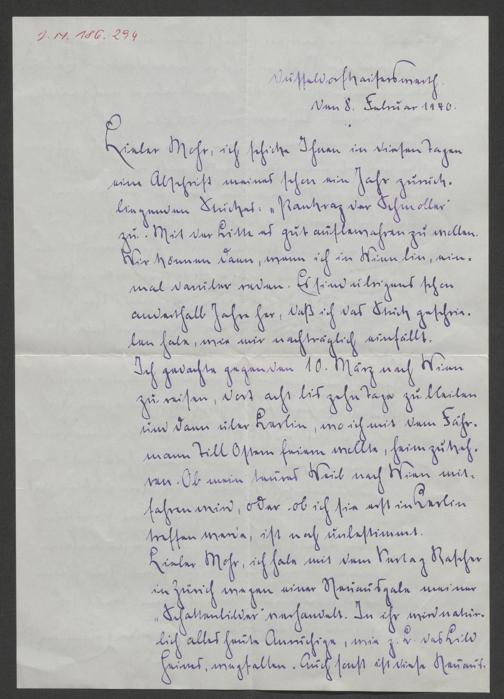 J. N. 186.294
Düsseldorf-Kaiserswerth.
den 8. Februar 1940.
Lieber Mohr, ich schicke Ihnen in diesen Tagen
eine Abschrift meines schon ein Jahr zurück-
liegenden Stückes: „Pankraz der Schmoller"
zu. Mit der Bitte es gut aufbewahren zu wollen.
Wir können dann, wenn ich in Wien bin, ein-
mal darüber reden. Es sind übrigens schon
anderthalb Jahre her, daß ich das Stück geschrie-
ben habe, wie mir nachträglich einfällt.
Ich gedachte gegen den 10. März nach Wien
zu reisen, dort acht bis zehn Tage zu bleiben
und dann über Berlin, wo ich mit dem Fähr-
mann Till Ostern feiern wollte, heimzukeh-
ren. Ob mein teures Weib nach Wien mit-
fahren wird, oder ob ich sie erst in Berlin
treffen werde, ist noch unbestimmt.
Lieber Mohr, ich habe mit dem Verlag Rascher
in Zürich wegen einer Neuausgabe meiner
„Schattenbilder" verhandelt. In ihr wird natür-
lich alles heute Anrüchige, wie z. B. das Bild
Heines, wegfallen. Auch sonst ist diese Neuaus-